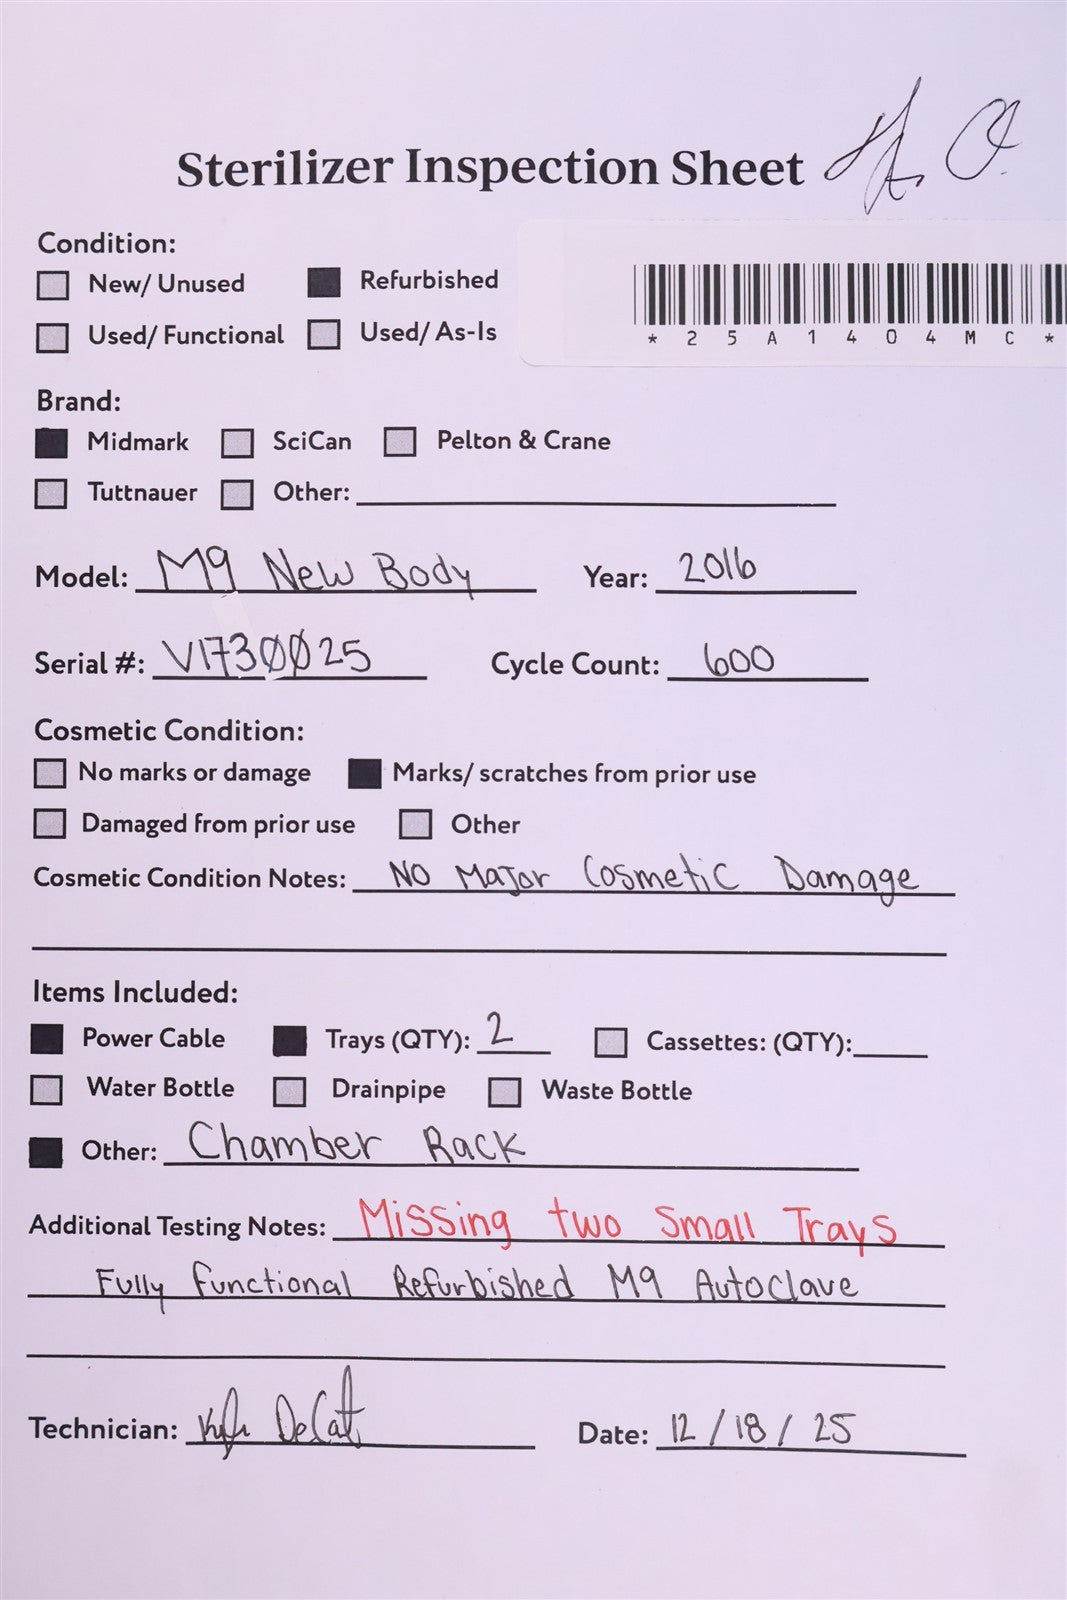 Sterilizer Inspection Sheet
Condition:
New/ Unused Refurbished
Used/ Functional Used/ As-Is
*25A1404MC*
Brand:
Midmark SciCan Pelton & Crane
Tuttnauer Other:
Model: M9 New Body Year: 2016
Serial #: V1730025 Cycle Count: 600
Cosmetic Condition:
No marks or damage Marks/ scratches from prior use
Damaged from prior use Other
Cosmetic Condition Notes: No Major Cosmetic Damage
Items Included:
Power Cable Trays (QTY): 2 Cassettes: (QTY):
Water Bottle Drainpipe Waste Bottle
Other: Chamber Rack
Additional Testing Notes: Missing two Small Trays
Fully Functional Refurbished M9 Autoclave
Technician:
Date: 12/18/25